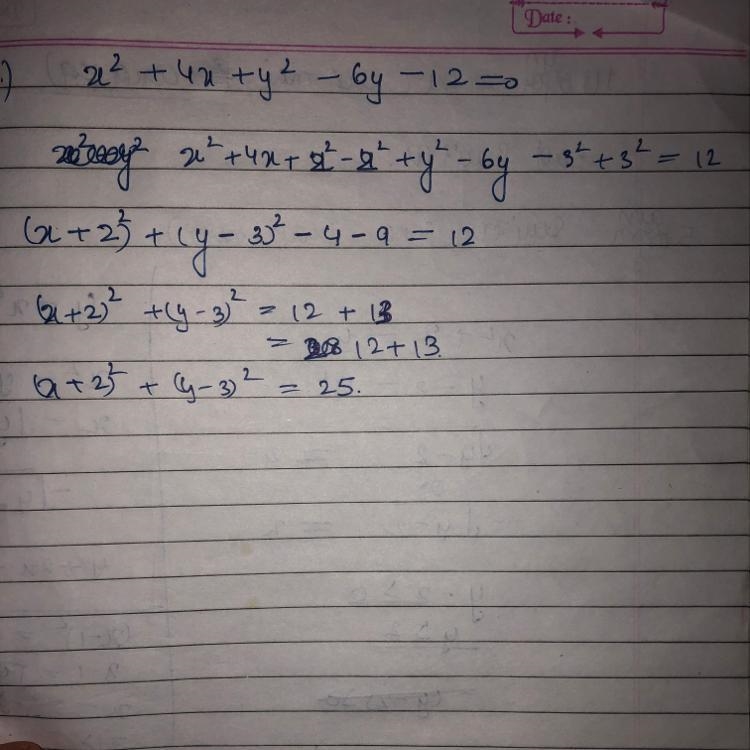 Date :
.) x² + 4x + y² - 6y - 12 = 0
x² + 4x + 2² - 2² + y² - 6y - 3² + 3² = 12
(x + 2)² + (y - 3)² - 4 - 9 = 12
(x + 2)² + (y - 3)² = 12 + 13
= 12 + 13.
(x + 2)² + (y - 3)² = 25.